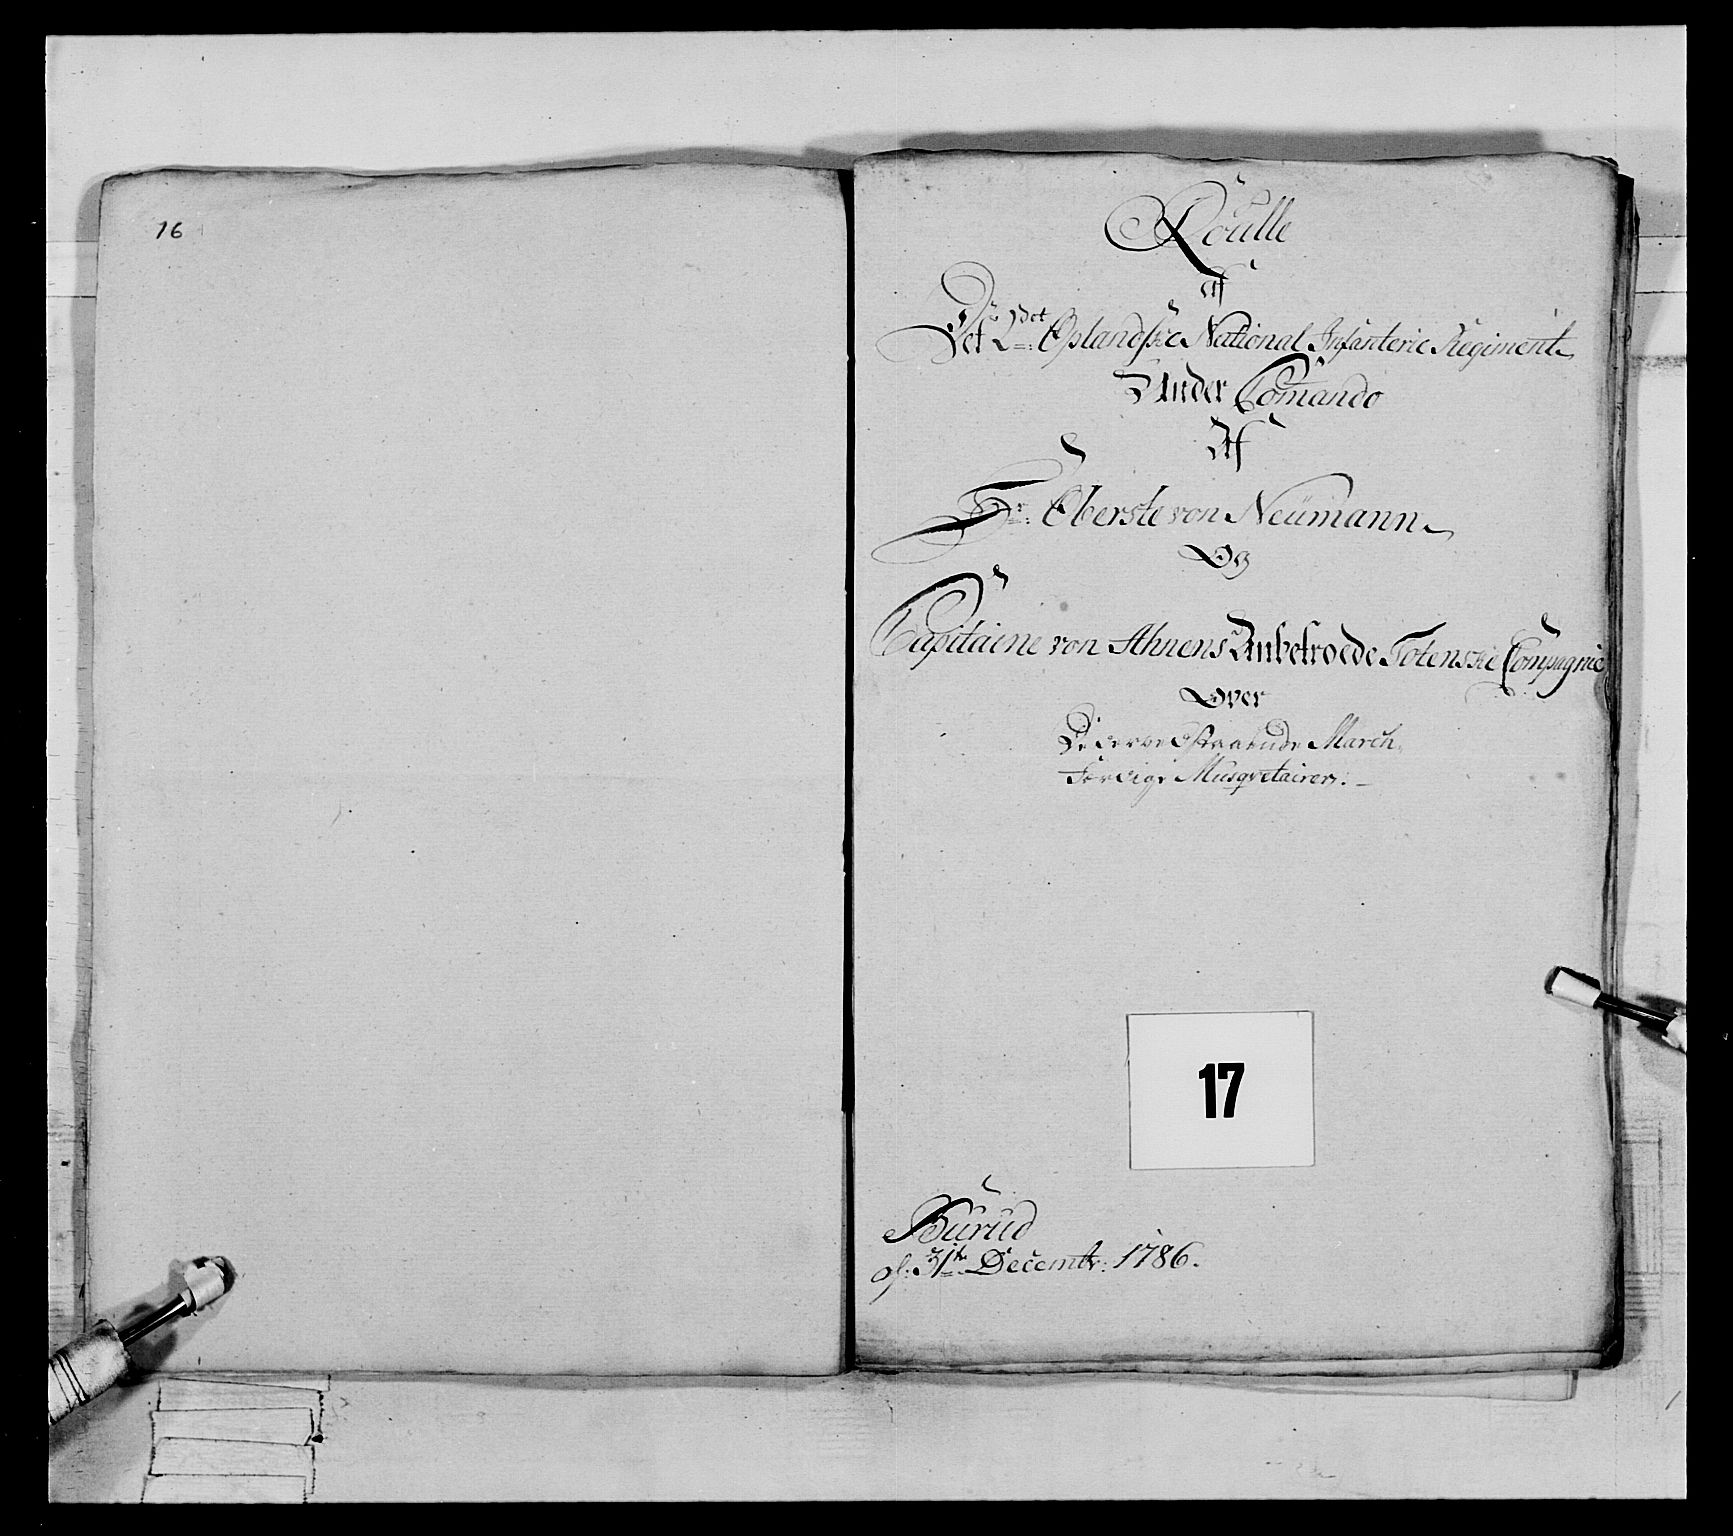 16
Roulle
af
Det 2det Oplandske National Infanterie Regiment
Under Comando
Af
Hr: Oberste von Neümann
Og
Capitaine von Ahnens Anbetroede Totenske Compagnie
Over
De derved staaende March
Færdige Musqvetairer:
17
Bürüd
d: 31te Decembr: 1786.